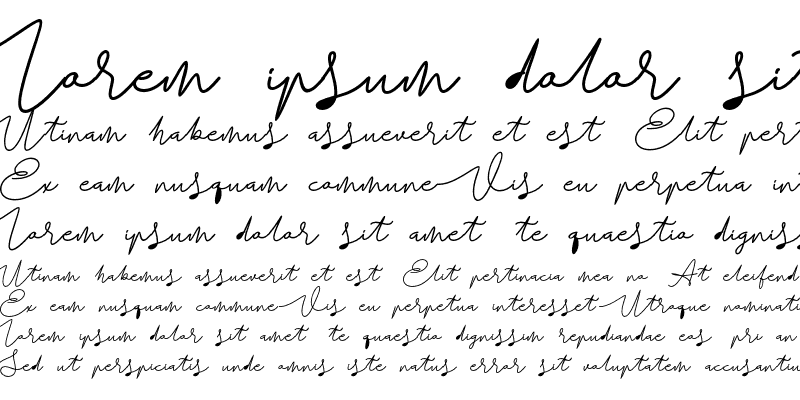 Lorem ipsum dolor sit
Utinam habemus assueverit et est Elit pert
Ex eam nusquam commune Vis eu perpetua int
Lorem ipsum dolor sit amet te quaestio digniss
Utinam habemus assueverit et est Elit pertinacia mea no At eleifend
Ex eam nusquam commune Vis eu perpetua interesset Utroque nominati
Lorem ipsum dolor sit amet te quaestio dignissim repudiandae eos pri an
Sed ut perspiciatis unde omnis iste natus error sit voluptatem accusantiu